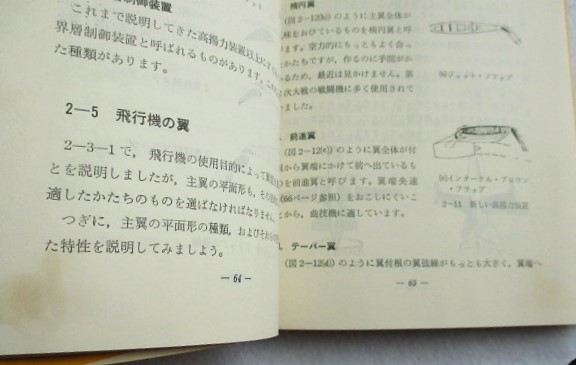 制御装置
これまで説明してきた高揚力装置以上に
界層制御装置と呼ばれるものがあります。
た種類があります。
2—5 飛行機の翼
2—3—1で，飛行機の使用目的によって
とを説明しましたが，主翼の平面形も，その
適したかたちのものを選ばなければなりません。
つぎに，主翼の平面形の種類，および
た特性を説明してみましょう。
— 64 —
楕円翼
(図2—12(b))のように主翼全体が
味をおびているものを楕円翼と呼
ます。空力的にもっともよく合っ
かたちですが，作るのに手間がか
るため，最近は見かけません。第
次大戦の戦闘機に多く使用されて
ました。
ジェット・フラップ
前進翼
(図2—12(c))のように翼全体が付
から翼端にかけて前へ出ているも
を前進翼と呼びます。翼端失速
(66ページ参照)をおこしにくいこ
から，曲技機に適しています。
インターナル・ブロウン・
フラップ
2—11 新しい高揚力装置
テーパー翼
(図2—12(d))のように翼付根の翼弦線がもっとも大きく，翼端へ
— 65 —